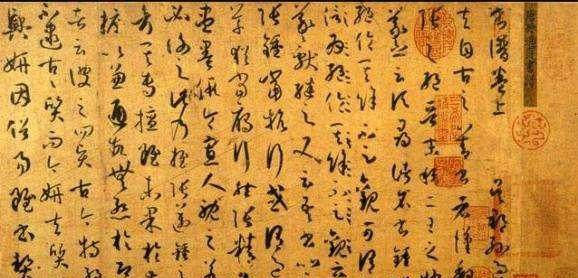 書譜卷上 吳郡孫
夫自古之善書者漢魏
張之絕晉末稱二王之
羲之云頃尋諸名書鍾
絕倫其餘不足觀可謂
信為絕倫其餘不足觀云
羲獻繼之又云吾書比
張鍾當抗行或謂過
草猶當雁行然張精
盡墨假令寡人耽之若
必謝之此乃推張邁鍾之
考其專擅雖未果於前
摭以兼通故無慚於即
者云彼之四賢古今特
不逮古古質而今妍夫質
興妍因俗易雖書契